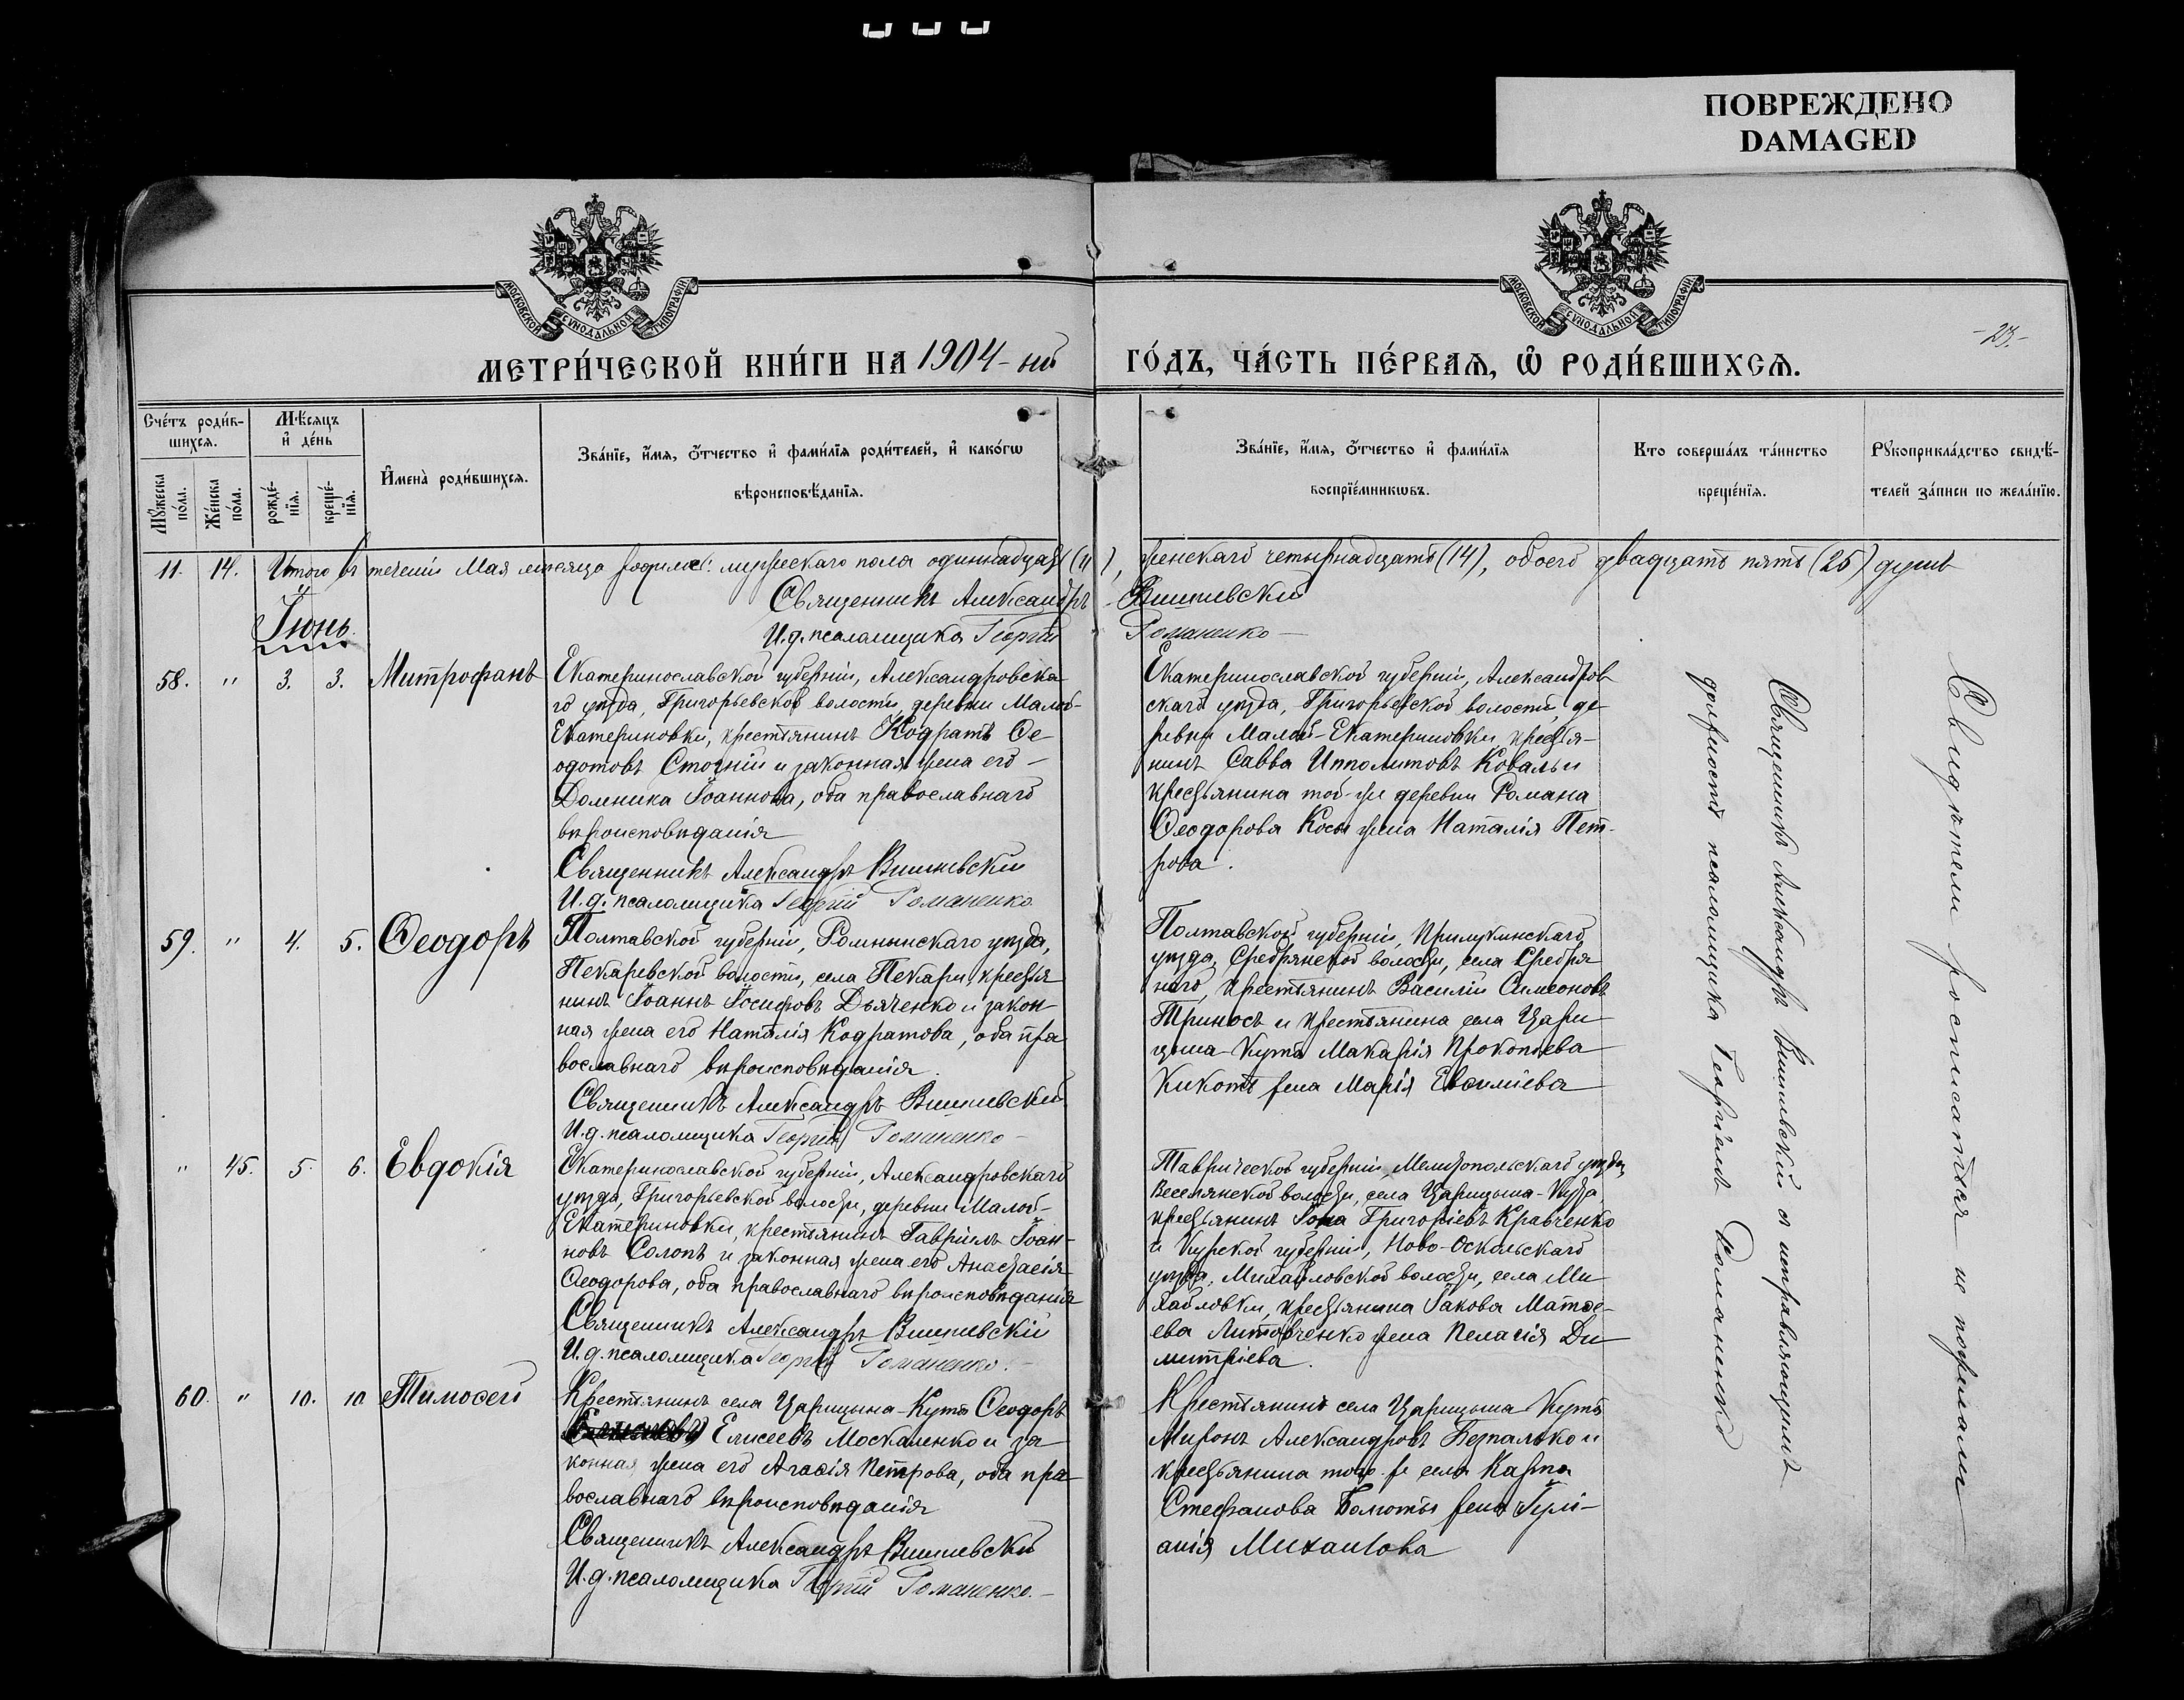 ПОВРЕЖДЕНО
DAMAGED
МОСКОВСКОЙ СѴНОДАЛЬНОЙ ТИПОГРАФІИ
МОСКОВСКОЙ СѴНОДАЛЬНОЙ ТИПОГРАФІИ
МЕТРИ́ЧЕСКОЙ КНИ́ГИ НА 1904-ий ГО́ДЪ, ЧА́СТЬ ПЕ́РВАѦ, Ѡ҆ РОДИ́ВШИХСѦ.
Сче́тъ роди́вшихсѧ.
Мꙋ́жеска по́ла.
Же́нска по́ла.
Мѣ́сѧцъ и҆ де́нь
рожде́нїѧ.
креще́нїѧ.
И҆мена̀ роди́вшихсѧ.
Зва́нїе, и҆́мѧ, ѻ҆́тчество и҆ фами́лїѧ роди́телей, и҆ како́гѡ
вѣроисповѣ́данїѧ.
Зва́нїе, и҆́мѧ, ѻ҆́тчество и҆ фами́лїѧ
воспрїе́мникѡвъ.
Кто соверша́лъ та́инство
креще́нїѧ.
Рꙋкоприкла́дство свидѣ́-
телей за́писи по жела́нїю.
11. 14. Итого въ теченіи Мая мѣсяца родилось: мужескаго пола одиннадцать (11), женскаго четырнадцать (14), обоего двадцать пять (25) душъ
Священникъ Александръ Вишневскій
И.д. псаломщика Георгій Романенко
Іюнь
58. " 3. 3. Митрофанъ
Екатеринославской губерніи, Александровска-
го уѣзда, Григорьевской волости, деревни Малой-
Екатериновки, крестьянинъ Кодратъ Ѳе-
одотовъ и законная жена его
Домника Іоаннова, оба православнаго
вѣроисповѣданія
Священникъ Александръ Вишневскій
И.д. псаломщика Георгій Романенко
Екатеринославской губерніи, Александров
скаго уѣзда, Григорьевской волости, де
ревни Малой-Екатериновки, крестья-
нинъ Савва Ипполитовъ Коваль и
крестьянина той-же деревни Романа
Ѳеодорова жена Наталія Пет-
рова.
59. " 4. 5. Ѳеодоръ
Полтавской губерніи, Роменскаго уѣзда,
Пекаревской волости, села Пекари, крестья
нинъ Іоаннъ Іосифовъ Дьяченко и закон-
ная жена его Наталія Кодратова, оба пра
вославнаго вѣроисповѣданія.
Священникъ Александръ Вишневскій
И.д. псаломщика Георгій Романенко
Полтавской губерніи, Прилукскаго
уѣзда, Сребрянской волости, села Сребря
наго, крестьянинъ Василій Симеоновъ
Триносъ и крестьянина села Цари
цына-Кута Макарія Прокопьева
Кикотя жена Марія Евѳиміева
" 45. 5. 6. Евдокія
Екатеринославской губерніи, Александровскаго
уѣзда, Григорьевской волости, деревни Малой-
Екатериновки, крестьянинъ Гавріилъ Іоан-
новъ Солопъ и законная жена его Анастасія
Ѳеодорова, оба православнаго вѣроисповѣданія
Священникъ Александръ Вишневскій
И.д. псаломщика Георгій Романенко.
Таврической губерніи, Мелитопольскаго уѣзда,
Веселянской волости, села Царицына-Кута,
крестьянинъ Іона Григоріевъ Кравченко
и Курской губерніи, Ново-Оскольскаго
уѣзда, Михайловской волости, села Ми
хайловки, крестьянина Іакова Матѳе-
ева Литовченко жена Пелагія Ди
митріева.
60. " 10. 10. Тимоѳей
Крестьянинъ села Царицына-Кута Ѳеодоръ
Елисеевъ Москаленко и за
конная жена его Агаѳія Петрова, оба пра
вославнаго вѣроисповѣданія
Священникъ Александръ Вишневскій
И.д. псаломщика Георгій Романенко.
Крестьянинъ села Царицына Кута
Миронъ Александровъ Безпалько и
крестьянина того же села Карпа
Стефанова Болоты жена Іулі-
анія Михайлова
Священникъ Александръ Вишневскій съ исправляющимъ
должность псаломщика Георгіемъ Романенко
Свидѣтели росписаться не пожелали